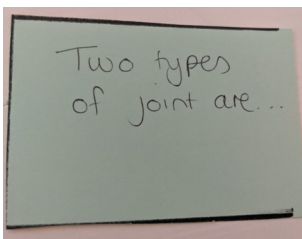 Two types
of joint are...